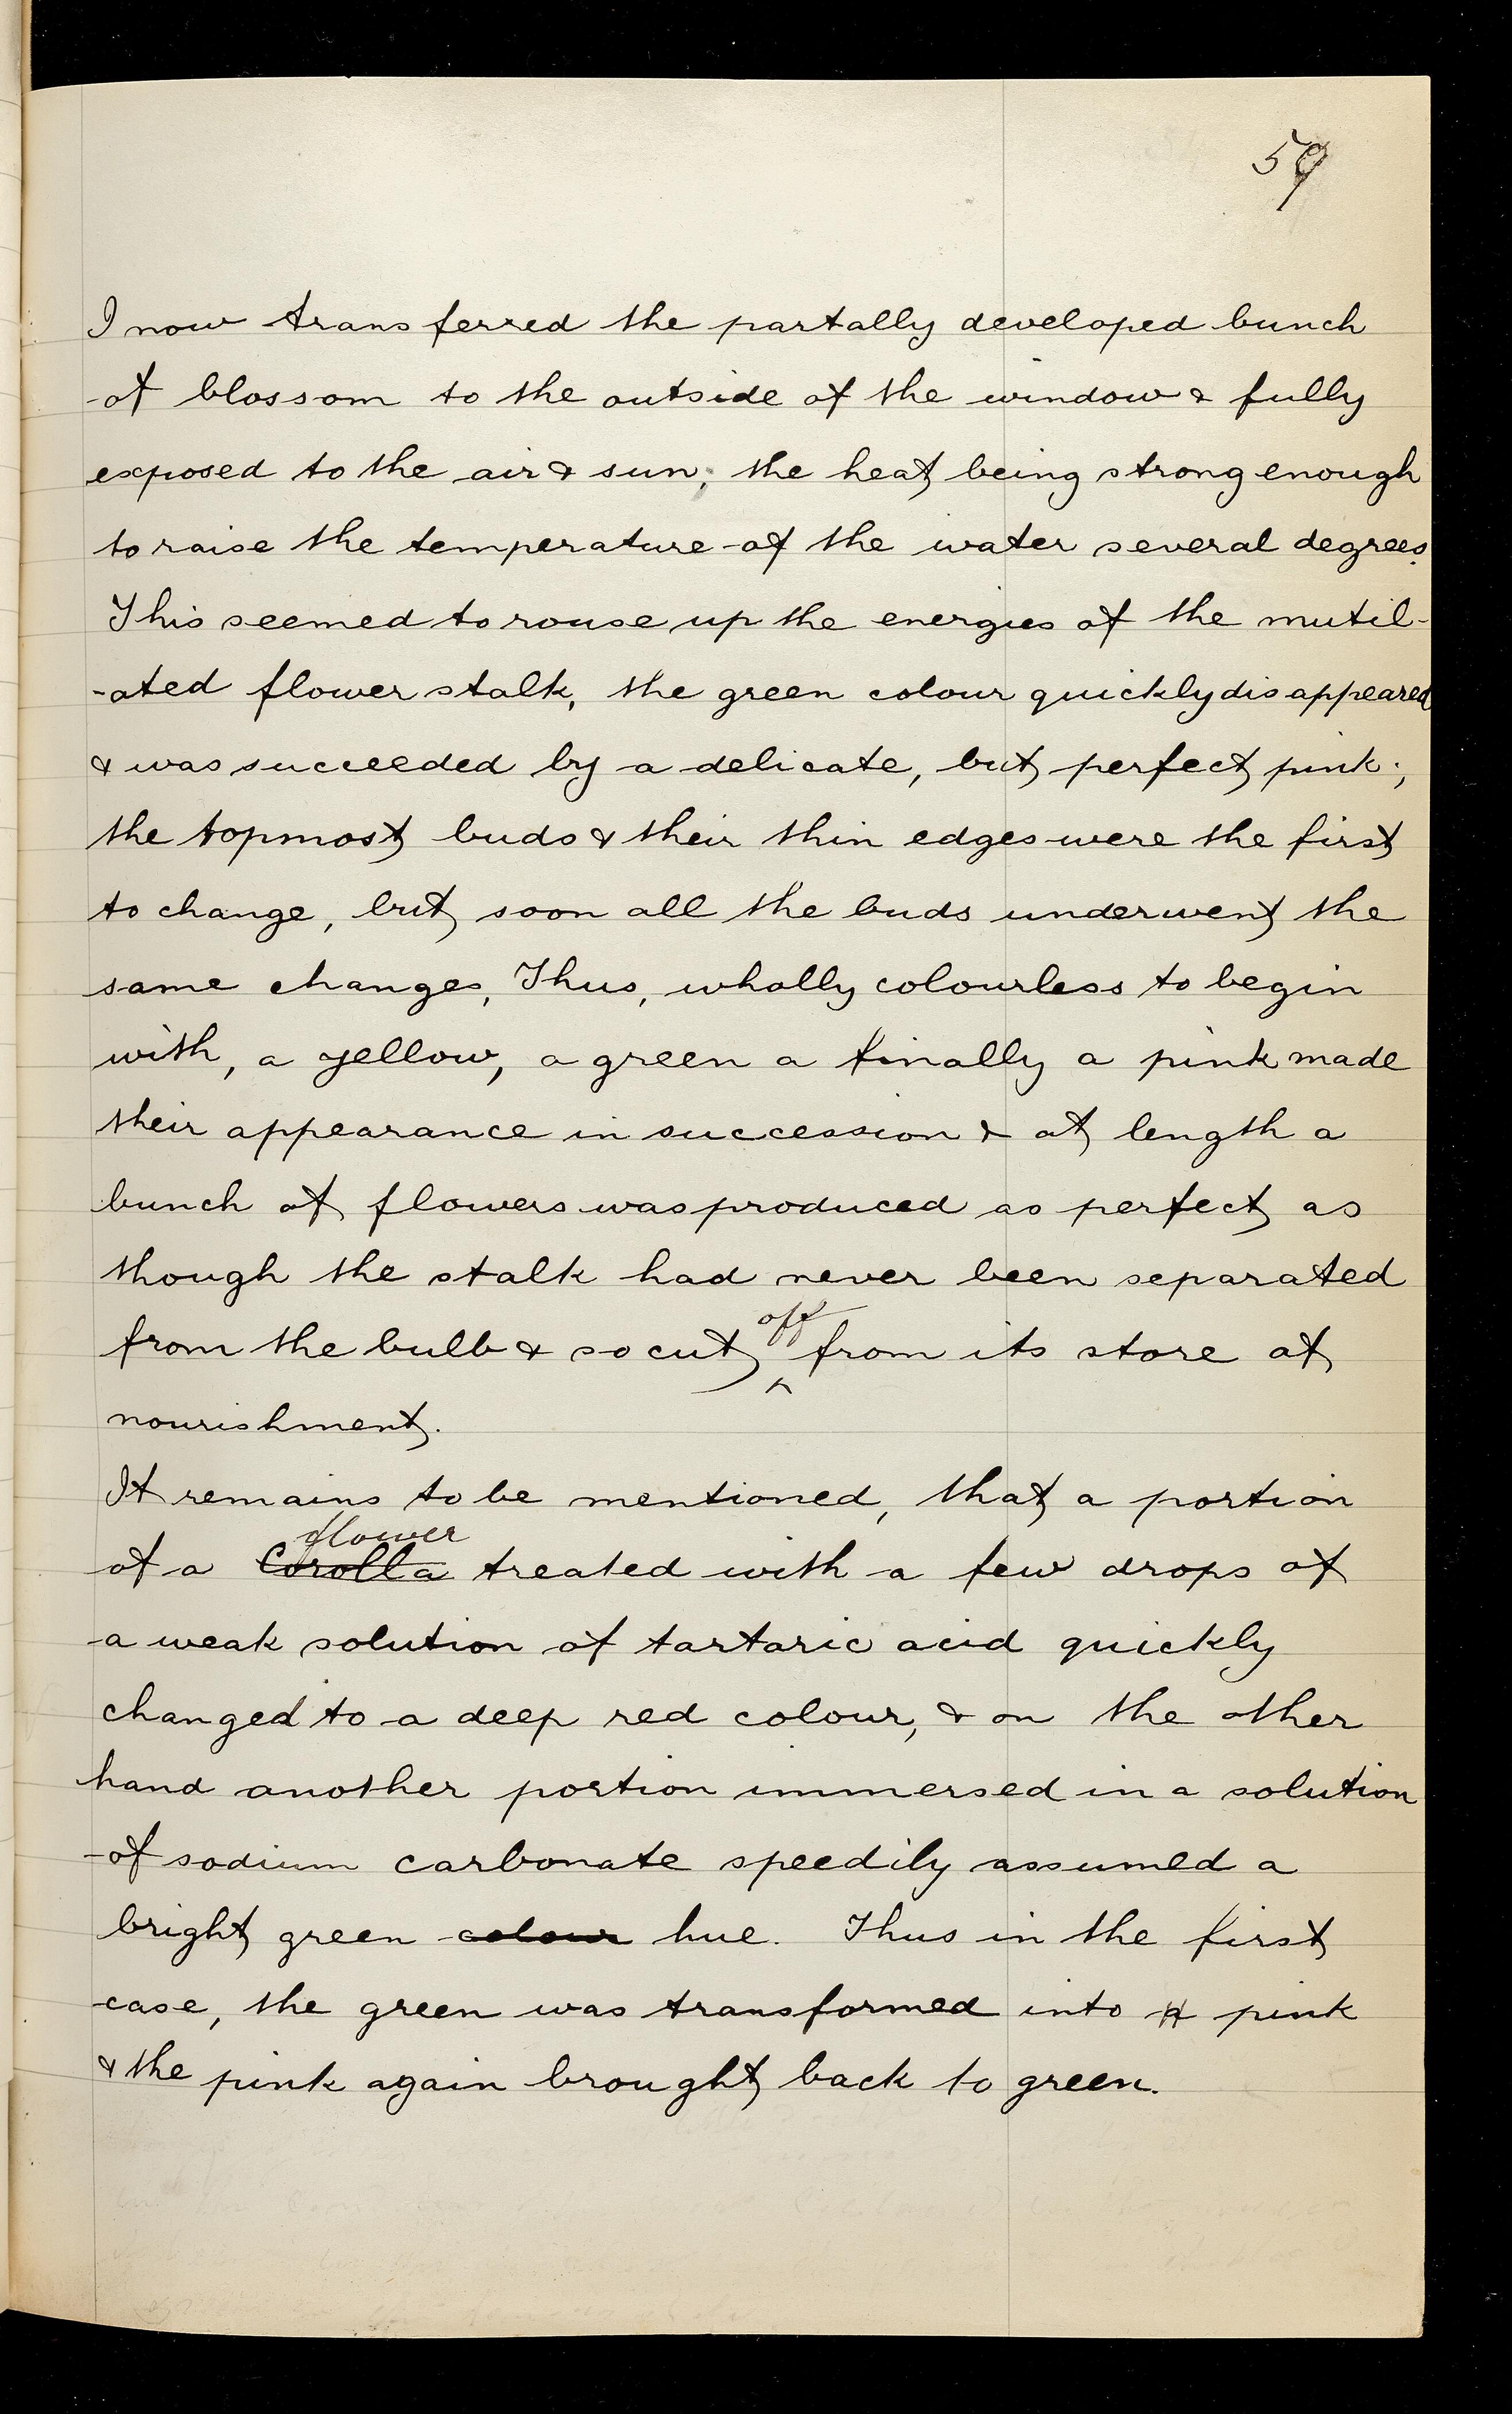 59
I now transferred the partally developed bunch
of blossom to the outside of the window & fully
exposed to the air & sun; the heat being strong enough
to raise the temperature of the water several degrees.
This seemed to rouse up the energies of the mutil-
-ated flower stalk, the green colour quickly disappeared
& was succeeded by a delicate, but perfect pink;
the topmost buds & their thin edges were the first
to change, but soon all the buds underwent the
same changes, Thus, wholly colourless to begin
with, a yellow, a green a finally a pink made
their appearance in succession & at length a
bunch of flowers was produced as perfect as
though the stalk had never been separated
off
from the bulb & so cut ^ from its store of
nourishment.
It remains to be mentioned, that a portion
flower
of a Corolla treated with a few drops of
a weak solution of tartaric acid quickly
changed to a deep red colour, & on the other
hand another portion immersed in a solution
of sodium carbonate speedily assumed a
bright green colour hue. Thus in the first
case, the green was transformed into a pink
& the pink again brought back to green.